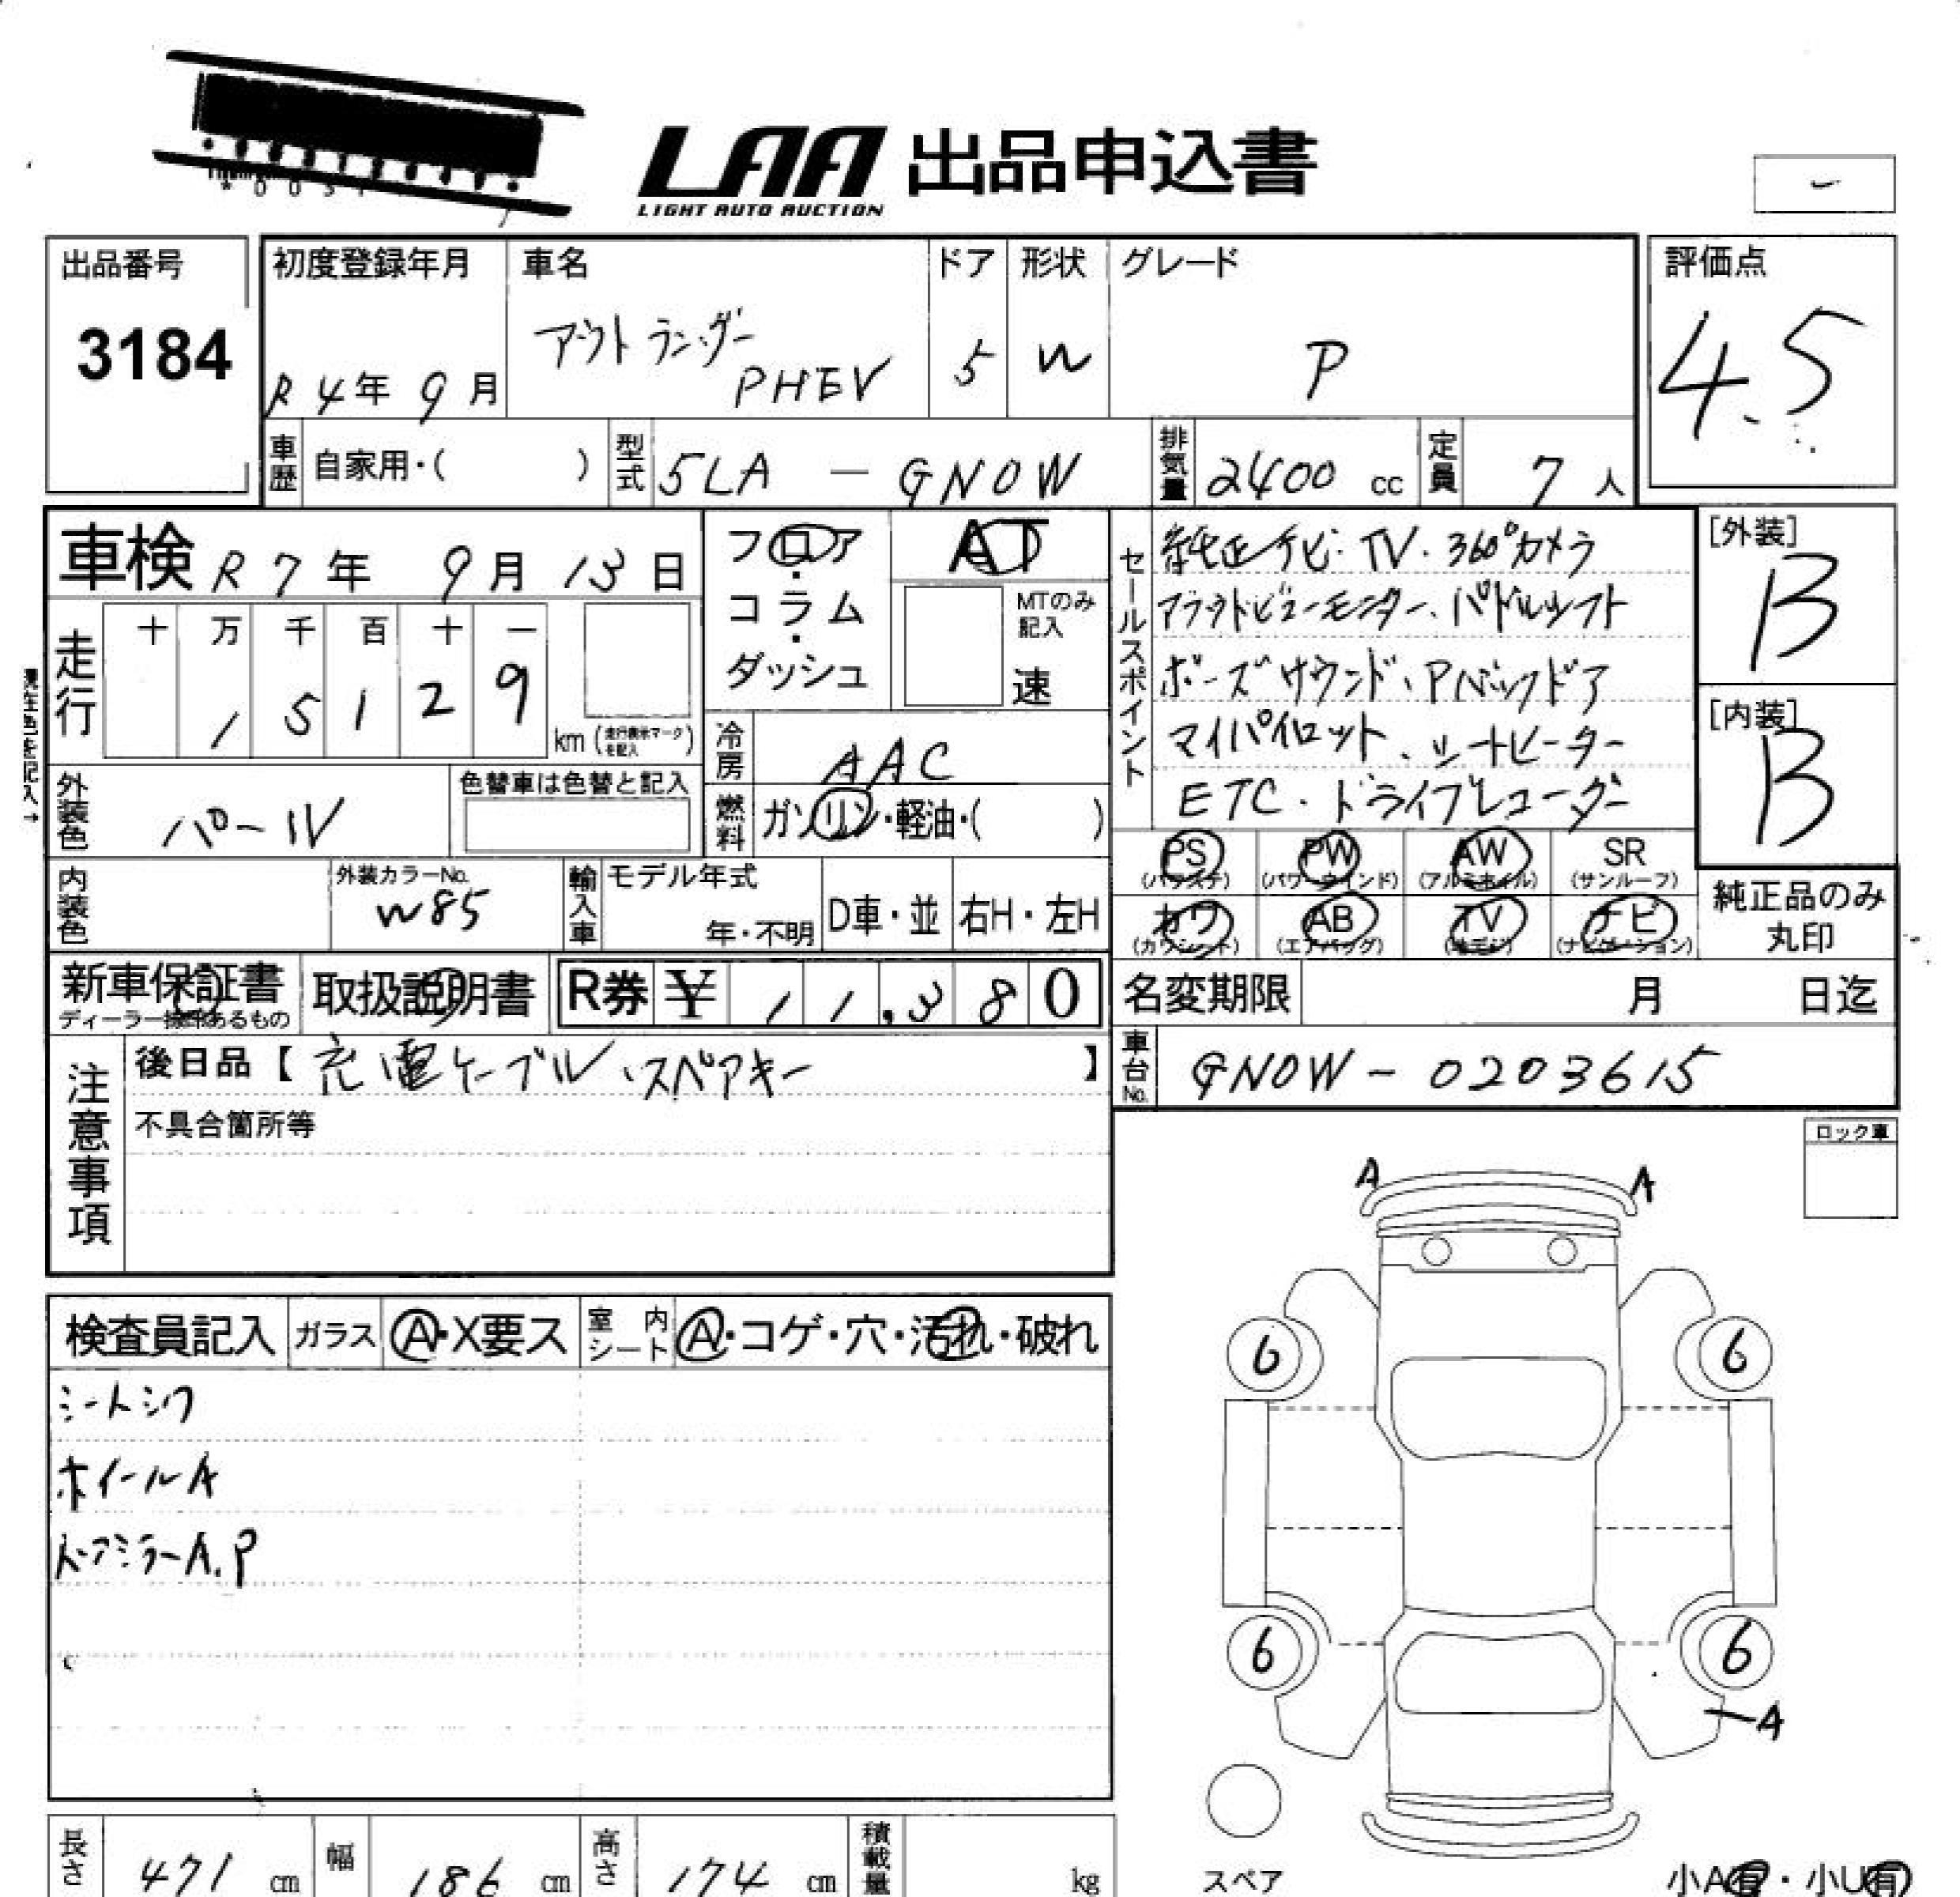 LAA 出品申込書
LIGHT AUTO AUCTION
出品番号
3184
初度登録年月
R 4年 9月
車名
アウトランダー
PHEV
ドア
5
形状
W
グレード
P
評価点
4.5
車歴 自家用・( )
型式 5LA - GN0W
排気量 2400 cc
定員 7 人
車検 R 7年 9月 13日
走行
十 万 千 百 十 一
1 5 1 2 9
km (走行表示マークを記入)
フロア・コラム・ダッシュ
AT
MTのみ記入
速
冷房 AAC
燃料 ガソリン・軽油・( )
セールスポイント
純正ナビ・TV・360°カメラ
アラウンドビューモニター、パドルシフト
ボーズサウンド、Pバックドア
マイパイロット、シートヒーター
ETC・ドライブレコーダー
[外装]
B
[内装]
B
外装色 パール
色替車は色替と記入
内装色
外装カラーNo.
W85
輸入車
モデル年式
年・不明
D車・並
右H・左H
PS (パワステ)
PW (パワーウインド)
AW (アルミホイル)
SR (サンルーフ)
カワ (カワシート)
AB (エアバッグ)
TV (地デジ)
ナビ (ナビゲーション)
純正品のみ
丸印
新車保証書
ディーラー捺印あるもの
取扱説明書
R券 ¥ 11,380
名変期限 月 日迄
車台No. GN0W - 0203615
注意事項
後日品【充電ケーブル、スペアキー】
不具合箇所等
ロック車
A A
検査員記入
ガラス A・X要ス
室内シート A・コゲ・穴・汚れ・破れ
シートシワ
ホイールA
ドアミラーA.P
6 6
6 6
A
スペア
長さ 471 cm
幅 186 cm
高さ 174 cm
積載量 kg
小A有・小U有